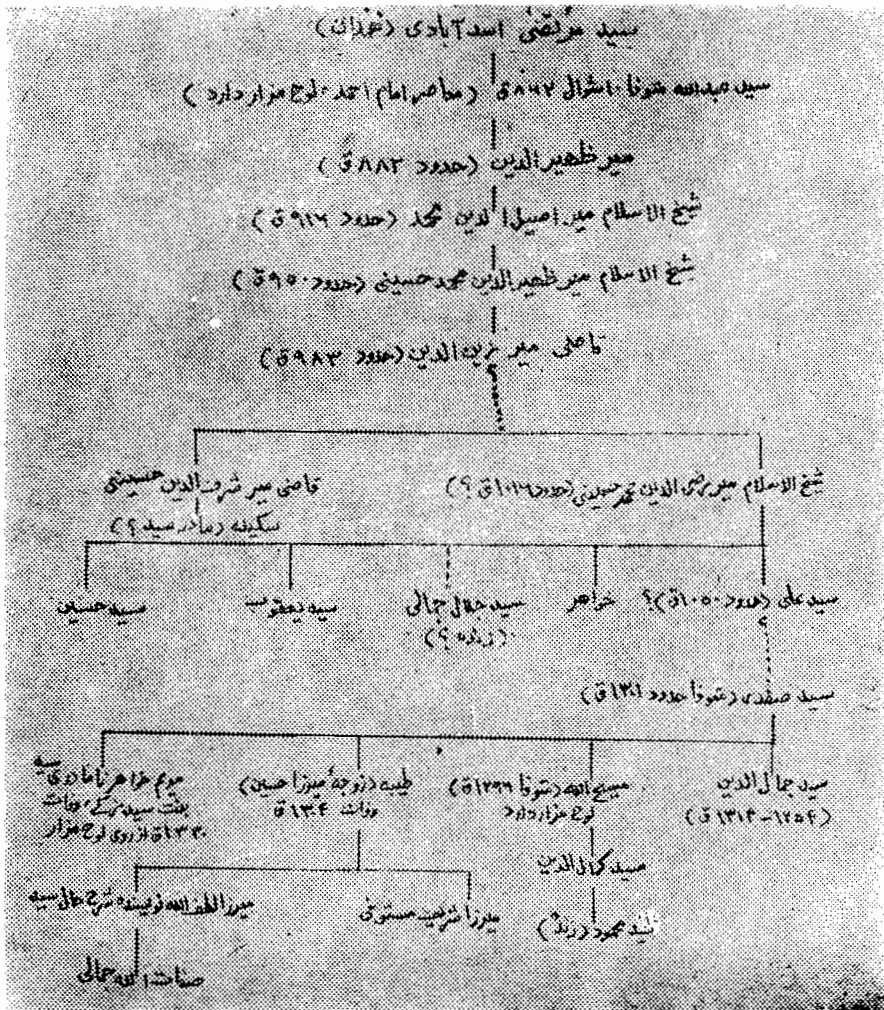 سید مرتضی اسدآبادی (همدان)
سید عبدالله متوفا ۱۰ شوال ۸۶۲ق (معاصر امام احمد. لوح مزار دارد)
میر ظهیرالدین (حدود ۸۸۲ق)
شیخ الاسلام میر اصیل الدین محمد (حدود ۹۱۶ق)
شیخ الاسلام میر ظهیرالدین محمد حسینی (حدود ۹۵۰ق)
قاضی میر زین الدین (حدود ۹۸۳ق)
؟
شیخ الاسلام میر رضی الدین محمد حسینی (حدود ۱۰۱۶ق ؟)
قاضی میر شرف الدین حسینی
سکینه (مادر سید ؟)
سید علی (حدود ۱۰۵۰ق)؟
خواهر
سید جلال جمالی
(زنده ؟)
سید یعقوب
سید حسین
سید صفدر (متوفا حدود ۱۳۰۱ق)
سید جمال الدین
(۱۲۵۴-۱۳۱۴ق)
مسیح الله (متوفا ۱۲۹۶ق)
لوح مزار دارد
طیبه (زوجهٔ میرزا حسین)
وفات ۱۳۰۴ق
مریم خواهر سید
بنت سید وفات
از روی لوح مزار
سید کمال الدین
سید محمود (زنده)
میرزا شریف مستوفی
میرزا لطف الله نویسنده شرح حال سید
صفات الله جمالی